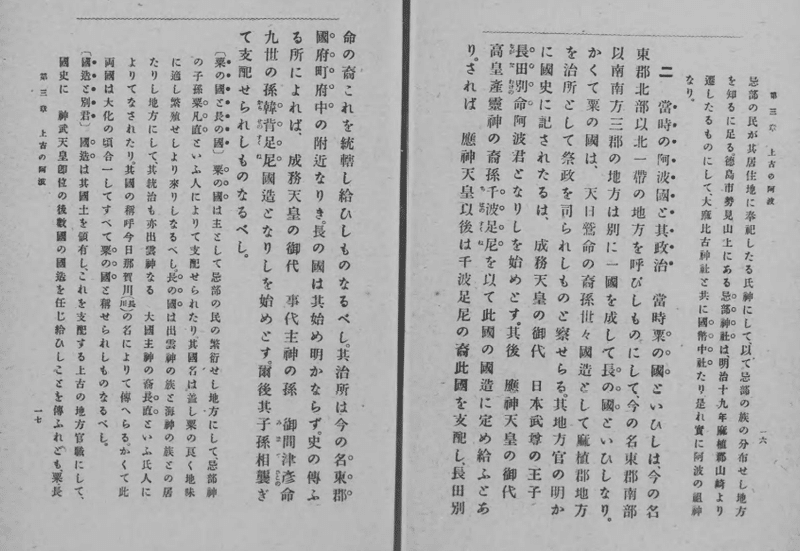 第三章　上古の阿波
一六
忌部の民が其居住地に奉祀したる氏神にして以て忌部の族の分布せし地方
を知るに足る徳島市勢見山上にある忌部神社は、明治十九年麻植郡山崎より
遷したるものにして、大麻比古神社と共に國幣中社たり是れ實に阿波の祖神
なり。
二　當時の阿波國と其政治　當時粟の國といひしは、今の名
東郡北部以北一帶の地方を呼びしものにして、今の名東郡南部
以南南方三郡の地方は別に一國を成して長の國といひしなり。
かくて粟の國は、天日鷲命の裔孫世々國造として麻植郡地方
を治所として祭政を司られしものと察せらる。其地方官の明か
に國史に記されたるは、成務天皇の御代　日本武尊の王子
長田別命阿波君となりしを始めとす。其後　應神天皇の御代
高皇産靈神の裔孫千波足尼を以て此國の國造に定め給ふとあ
り。されば　應神天皇以後は千波足尼の裔此國を支配し、長田別
命の裔これを統轄し給ひしものなるべし。其治所は今の名東郡
國府町府中の附近なりき。長の國は其始め明かならず。史の傳ふ
る所によれば、成務天皇の御代　事代主神の孫　御間津彦命
九世の孫韓背足尼國造となりしを始めとす。爾後其子孫相襲ぎ
て支配せられしものなるべし。
〔粟の國と長の國〕　粟の國は主として忌部の民の繁衍せし地方にして、忌部神
の子孫粟凡直といふ人によりて支配せられたり其國名は蓋し粟の良く地味
に適し繁殖せしより來りしなるべし長の國は出雲神の族と海神の族との居
たりし地方にして、其統治も亦出雲神なる　大國主神の裔長直といふ氏人に
よりてなされたり、其國の稱呼今日那賀川(長川)の名によりて傳へらる。かくて此
兩國は大化の頃合一してすべて粟の國と稱せられしものなるべし。
〔國造と別君〕　國造は其國土を領有し、これを支配する上古の地方官職にして、
國史に　神武天皇卽位の後數國の國造を任じ給ひしことを傳ふれども、粟長
第三章　上古の阿波
一七